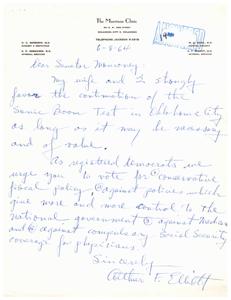 The Morrison Clinic
OKLAHOMA CITY 3, OKLAHOMA
TELEPHONE JACKSON
6-8-64
Dear Senator Monroney
My wife and I strongly
favor the continuation of the
Sonic Boom Test in Oklahoma City
as long as it may be necessary
and of value.
As registered democrats we
urge you to vote for conservative
fiscal policy, against policies which
give more and more control to the
national government against Medicare
and against compulsory Social Security
coverage for physicians.
Sincerely
Arthur F. Elliott